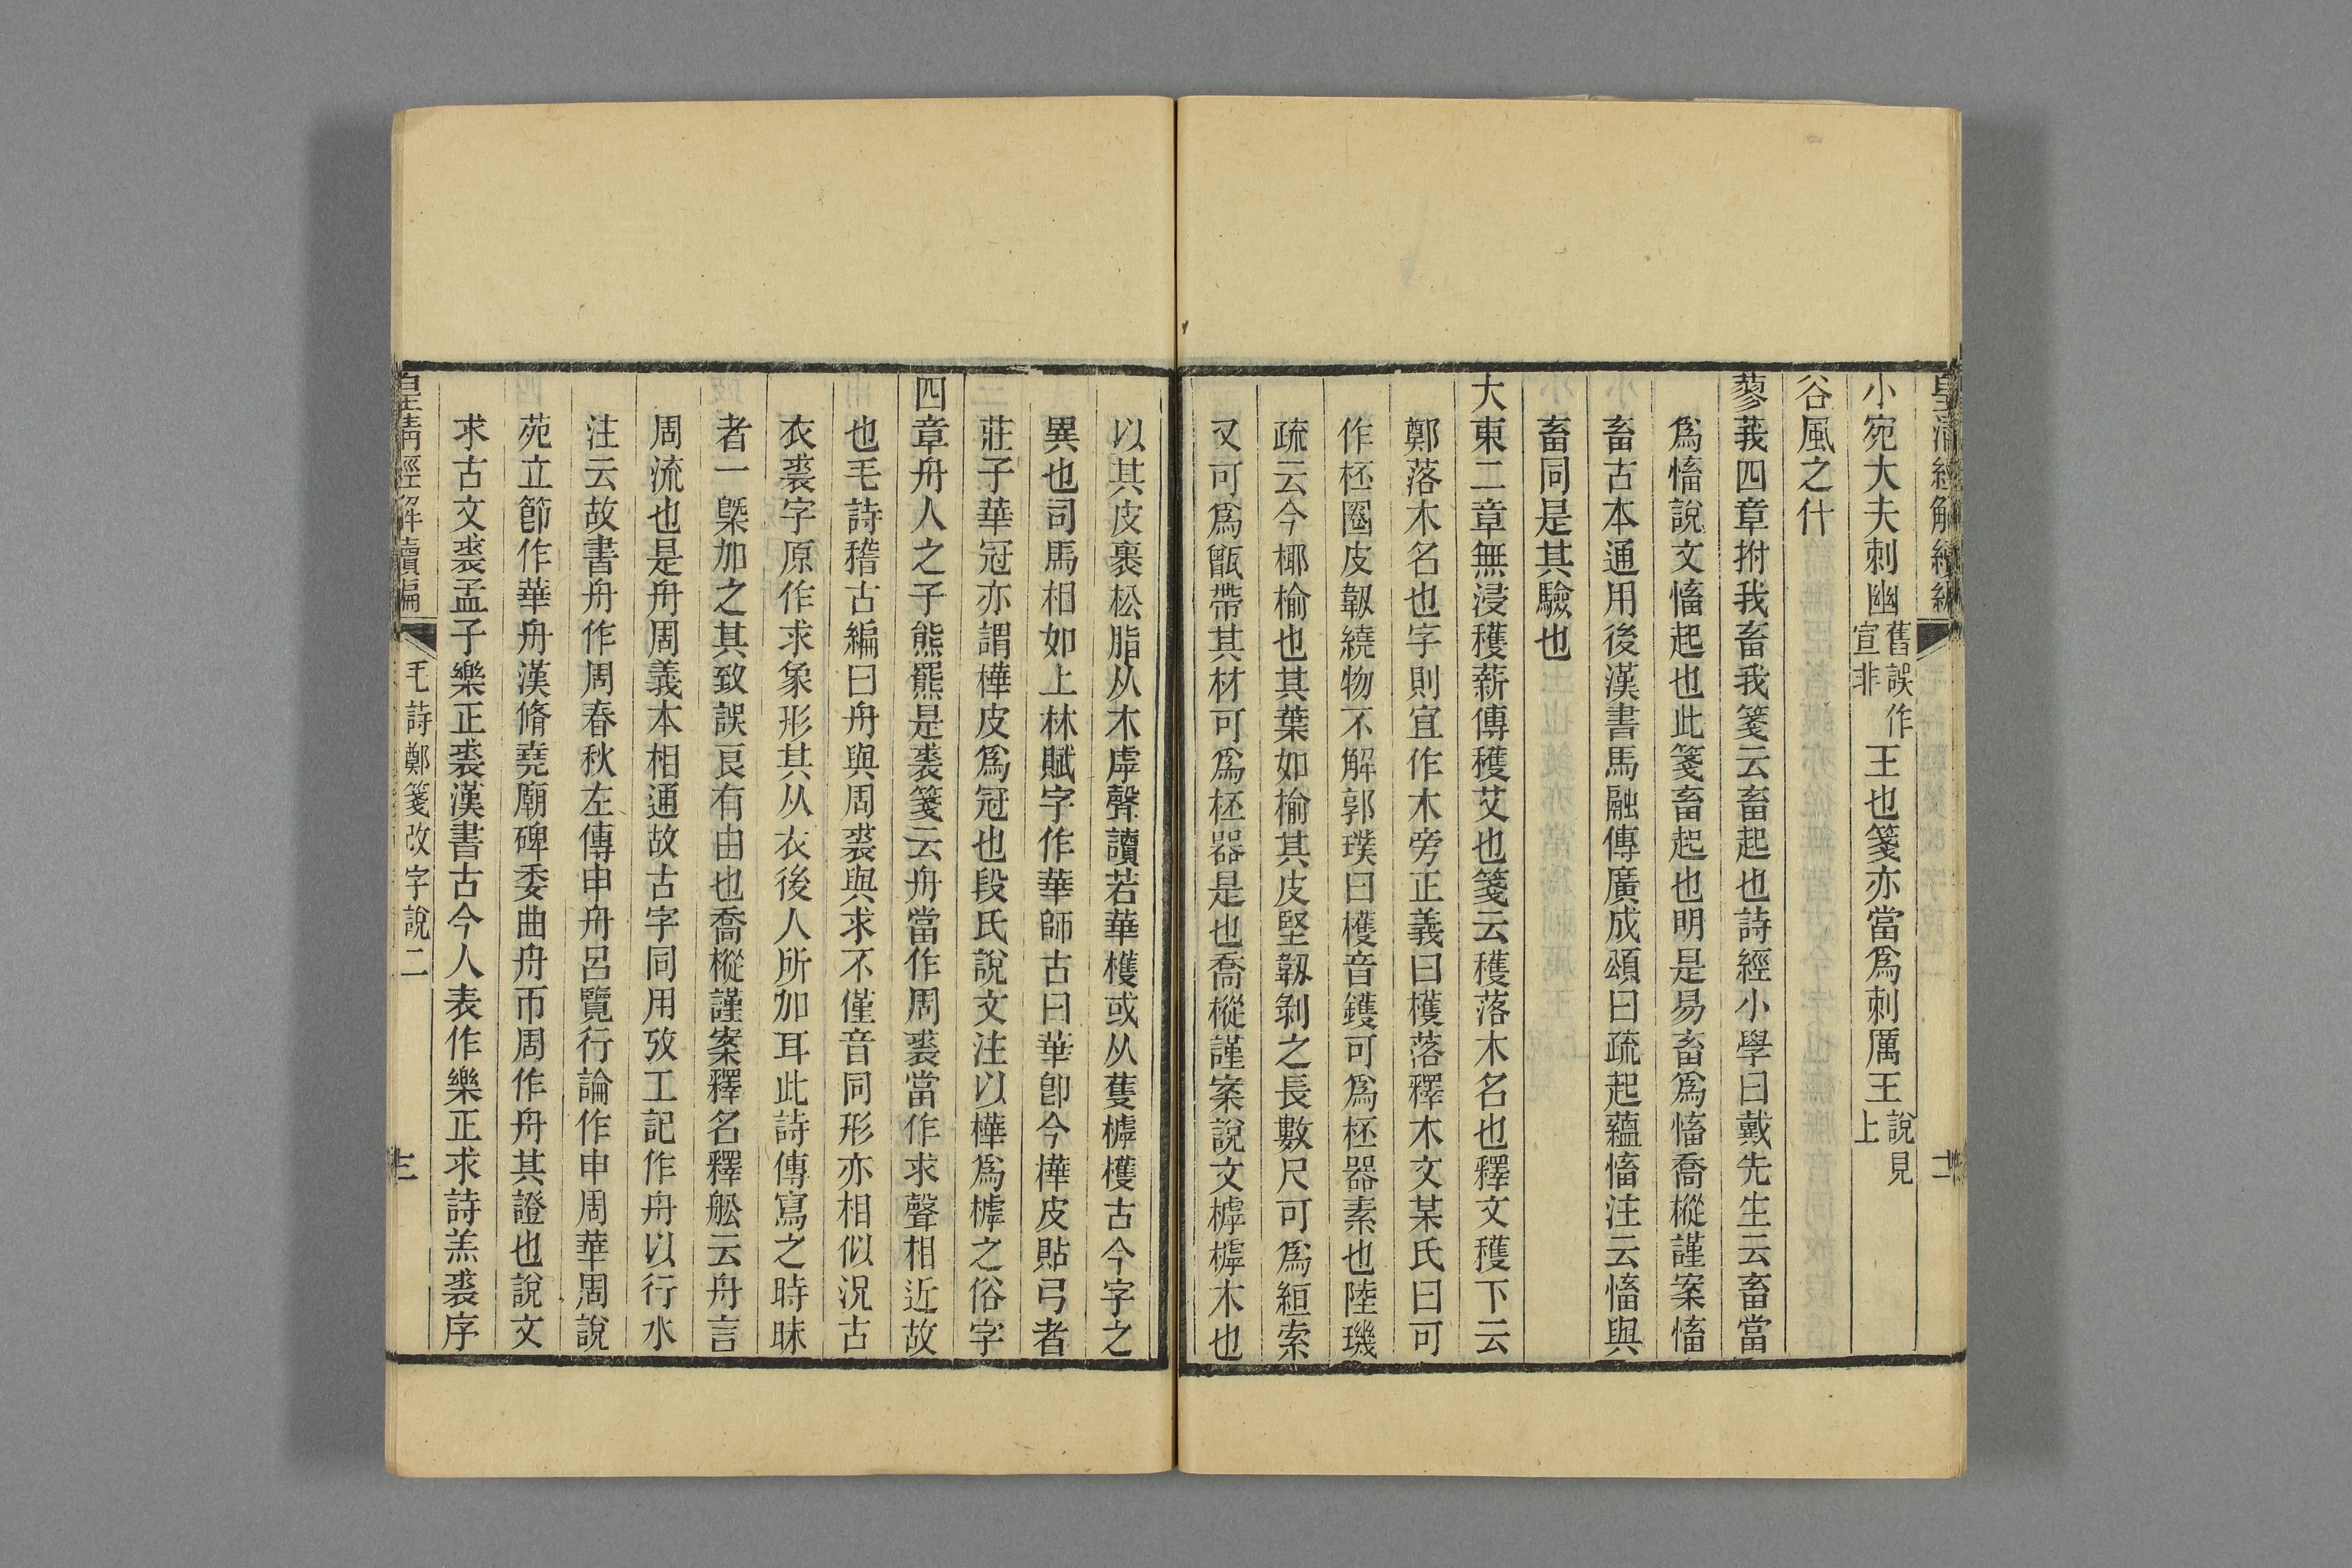 皇清經解續編
小宛大夫刺幽舊誤作宣非王也箋亦當爲刺厲王說見上
谷風之什
蓼莪四章拊我畜我箋云畜起也詩經小學曰戴先生云畜當
爲慉說文慉起也此箋畜起也明是易畜爲慉喬樅謹案慉
畜古本通用後漢書馬融傳廣成頌曰疏起蘊慉注云慉與
畜同是其驗也
大東二章無浸穫薪傳穫艾也箋云穫落木名也釋文穫下云
鄭落木名也字則宜作木旁正義曰檴落釋木文某氏曰可
作柸圈皮韌繞物不解郭璞曰檴音鑊可爲柸器素也陸璣
疏云今椰榆也其葉如榆其皮堅韌剝之長數尺可爲絙索
又可爲甑帶其材可爲柸器是也喬樅謹案說文樗樗木也
以其皮裹松脂从木雩聲讀若華檴或从蒦樗檴古今字之
異也司馬相如上林賦字作華師古曰華卽今樺皮貼弓者
莊子華冠亦謂樺皮爲冠也段氏說文注以樺爲樗之俗字
四章舟人之子熊羆是裘箋云舟當作周裘當作求聲相近故
也毛詩稽古編曰舟與周裘與求不僅音同形亦相似況古
衣裘字原作求象形其从衣後人所加耳此詩傳寫之時昧
者一槩加之其致誤良有由也喬樅謹案釋名釋船云舟言
周流也是舟周義本相通故古字同用攷工記作舟以行水
注云故書舟作周春秋左傳申舟呂覽行論作申周華周說
苑立節作華舟漢脩堯廟碑委曲舟帀周作舟其證也說文
求古文裘孟子樂正裘漢書古今人表作樂正求詩羔裘序
皇清經解續編
毛詩鄭箋改字說二